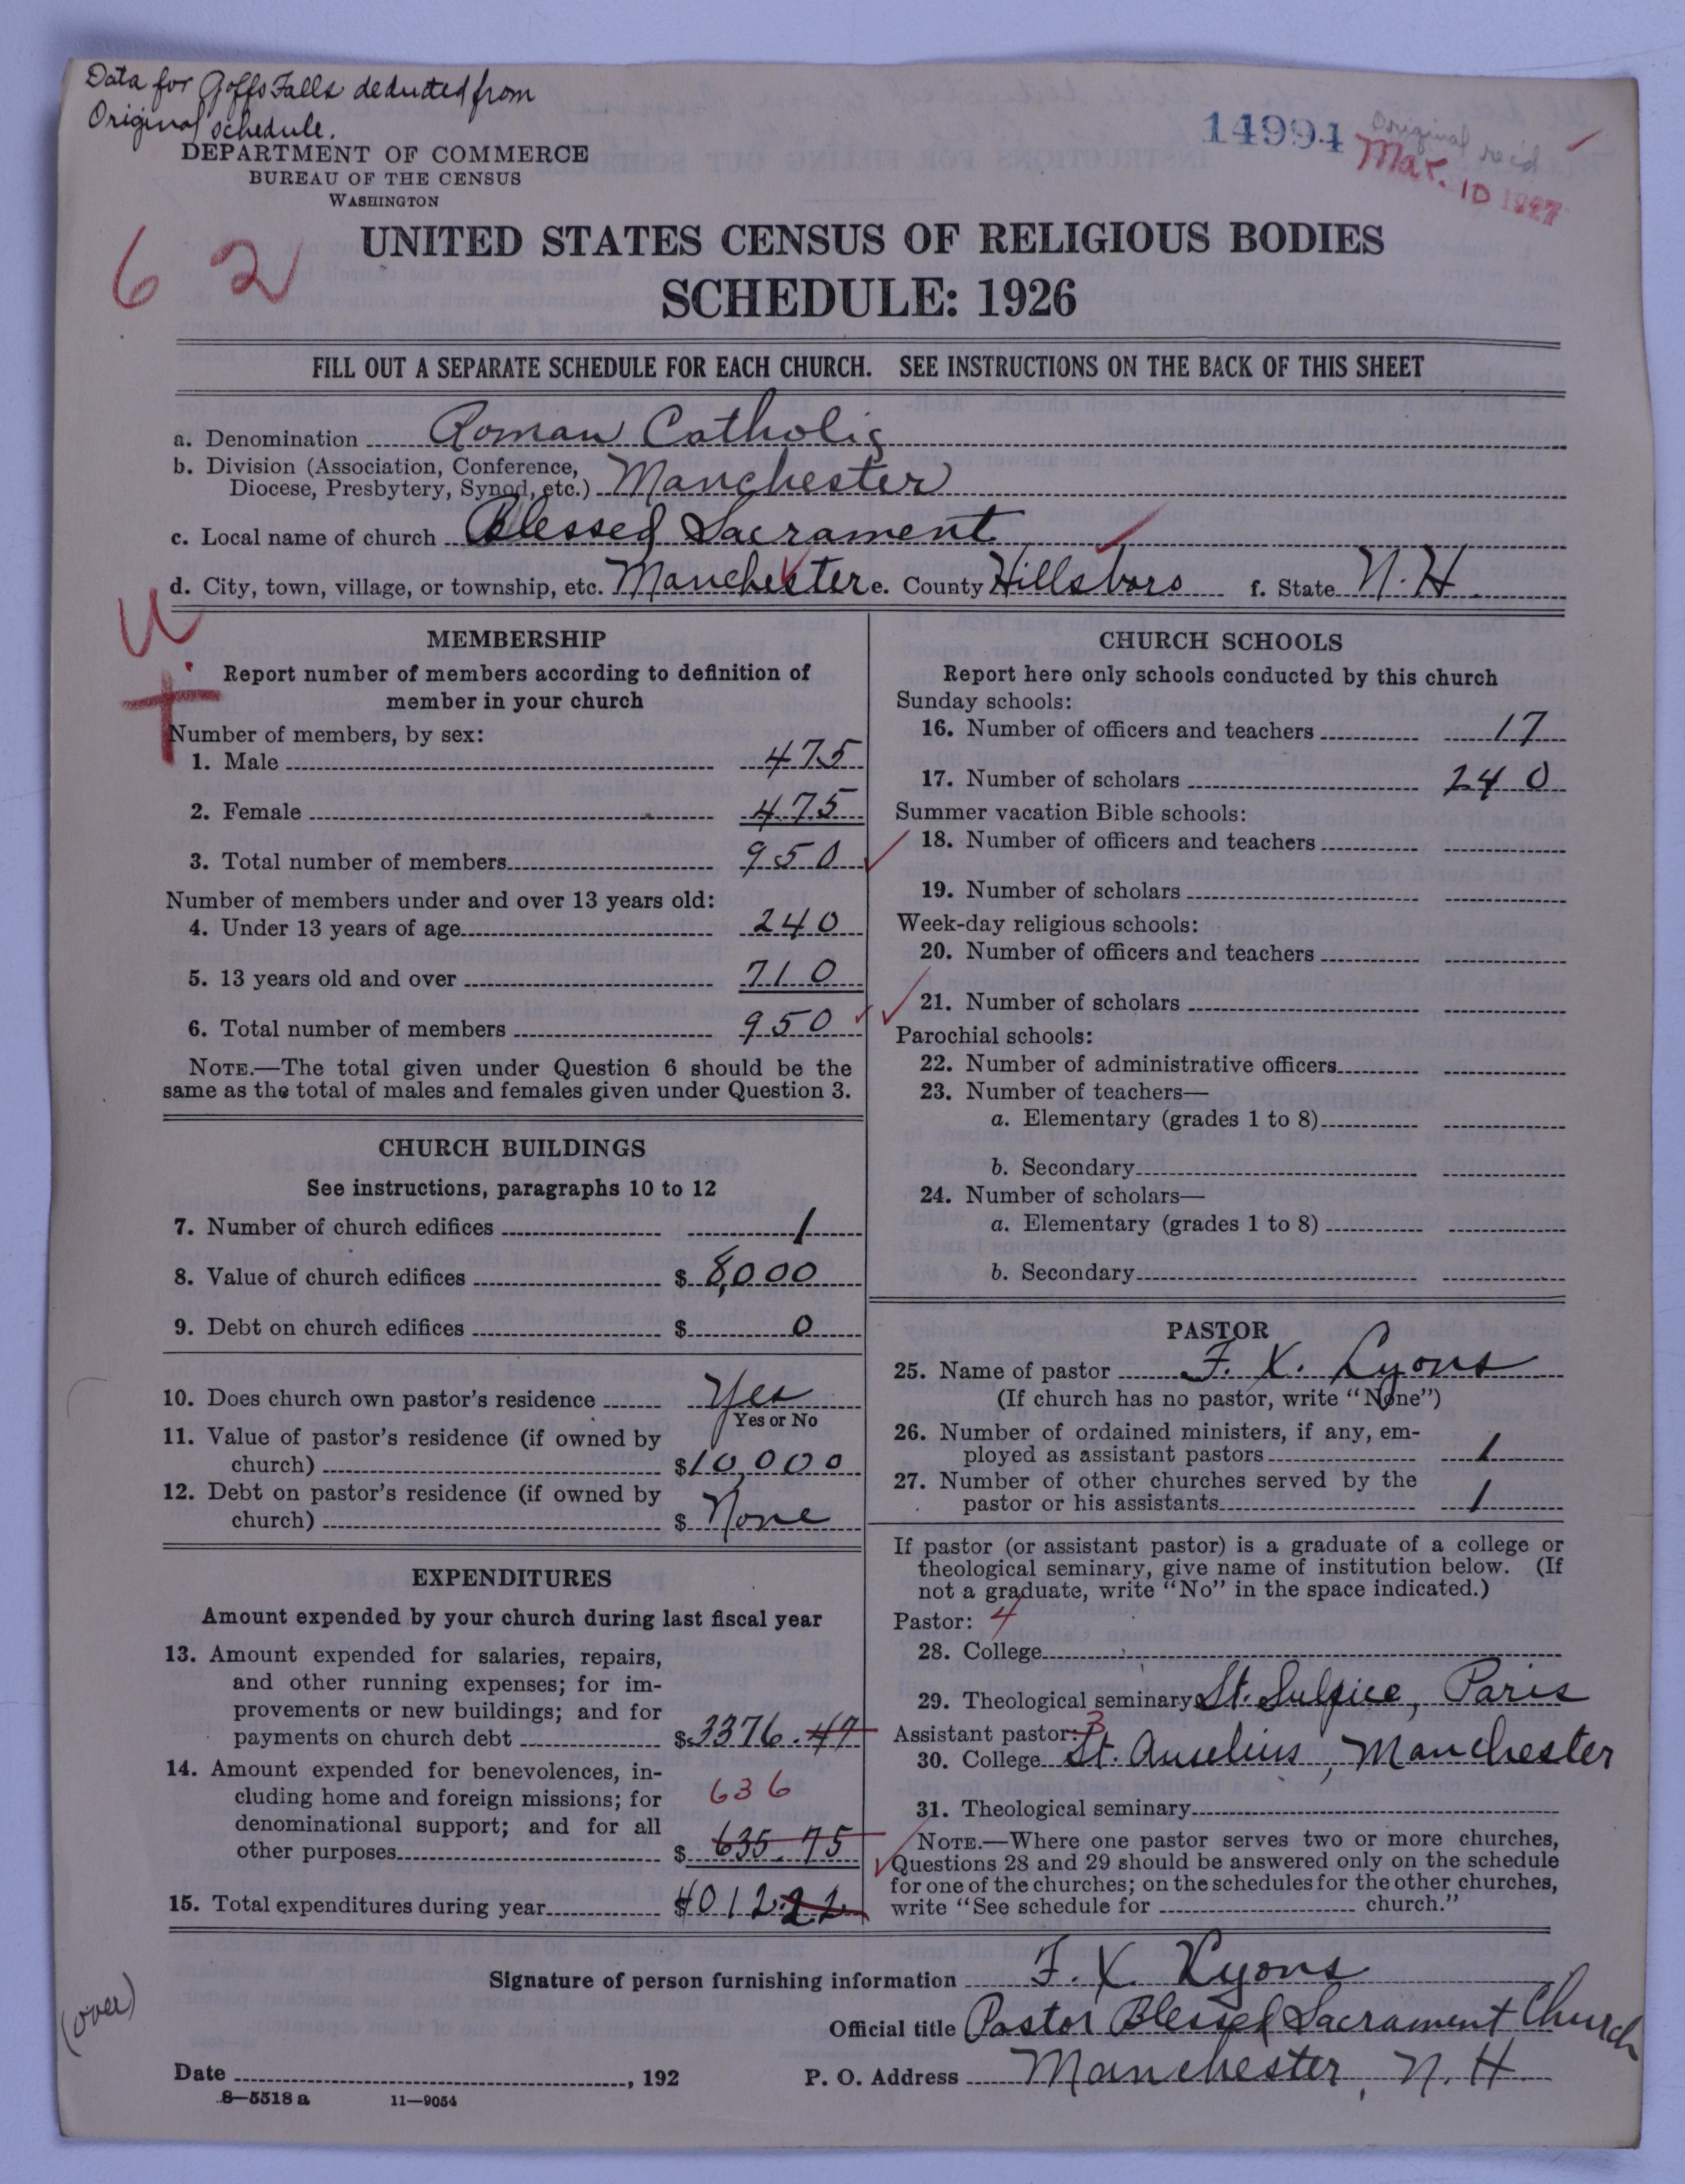 Data for Goffs Falls deducted from
Original schedule.
14994
Original rec'd
Mar. 10 1927
DEPARTMENT OF COMMERCE
BUREAU OF THE CENSUS
WASHINGTON
62
UNITED STATES CENSUS OF RELIGIOUS BODIES
SCHEDULE: 1926
FILL OUT A SEPARATE SCHEDULE FOR EACH CHURCH. SEE INSTRUCTIONS ON THE BACK OF THIS SHEET
a. Denomination Roman Catholic
b. Division (Association, Conference,
Diocese, Presbytery, Synod, etc.) Manchester
c. Local name of church Blessed Sacrament
d. City, town, village, or township, etc. Manchester e. County Hillsboro f. State N. H.
U
MEMBERSHIP
Report number of members according to definition of
member in your church
Number of members, by sex:
1. Male 475
2. Female 475
3. Total number of members 950
Number of members under and over 13 years old:
4. Under 13 years of age 240
5. 13 years old and over 710
6. Total number of members 950
NOTE.—The total given under Question 6 should be the
same as the total of males and females given under Question 3.
CHURCH BUILDINGS
See instructions, paragraphs 10 to 12
7. Number of church edifices 1
8. Value of church edifices $ 8,000
9. Debt on church edifices $ 0
10. Does church own pastor's residence Yes
Yes or No
11. Value of pastor's residence (if owned by
church) $10,000
12. Debt on pastor's residence (if owned by
church) $ None
EXPENDITURES
Amount expended by your church during last fiscal year
13. Amount expended for salaries, repairs,
and other running expenses; for im-
provements or new buildings; and for
payments on church debt $3376.47
14. Amount expended for benevolences, in-
cluding home and foreign missions; for 636
denominational support; and for all
other purposes $ 635.75
15. Total expenditures during year $4012.22
CHURCH SCHOOLS
Report here only schools conducted by this church
Sunday schools:
16. Number of officers and teachers 17
17. Number of scholars 240
Summer vacation Bible schools:
18. Number of officers and teachers
19. Number of scholars
Week-day religious schools:
20. Number of officers and teachers
21. Number of scholars
Parochial schools:
22. Number of administrative officers
23. Number of teachers—
a. Elementary (grades 1 to 8)
b. Secondary
24. Number of scholars—
a. Elementary (grades 1 to 8)
b. Secondary
PASTOR
25. Name of pastor F. X. Lyons
(If church has no pastor, write "None")
26. Number of ordained ministers, if any, em-
ployed as assistant pastors 1
27. Number of other churches served by the
pastor or his assistants 1
If pastor (or assistant pastor) is a graduate of a college or
theological seminary, give name of institution below. (If
not a graduate, write "No" in the space indicated.)
Pastor: 4
28. College
29. Theological seminary St. Sulpice, Paris
Assistant pastor: 3
30. College St. Anselms, Manchester
31. Theological seminary
NOTE.—Where one pastor serves two or more churches,
Questions 28 and 29 should be answered only on the schedule
for one of the churches; on the schedules for the other churches,
write "See schedule for church."
Signature of person furnishing information F. X. Lyons
(over)
Official title Pastor Blessed Sacrament Church
Date , 192 P. O. Address Manchester, N. H
8—5518 a 11—9054